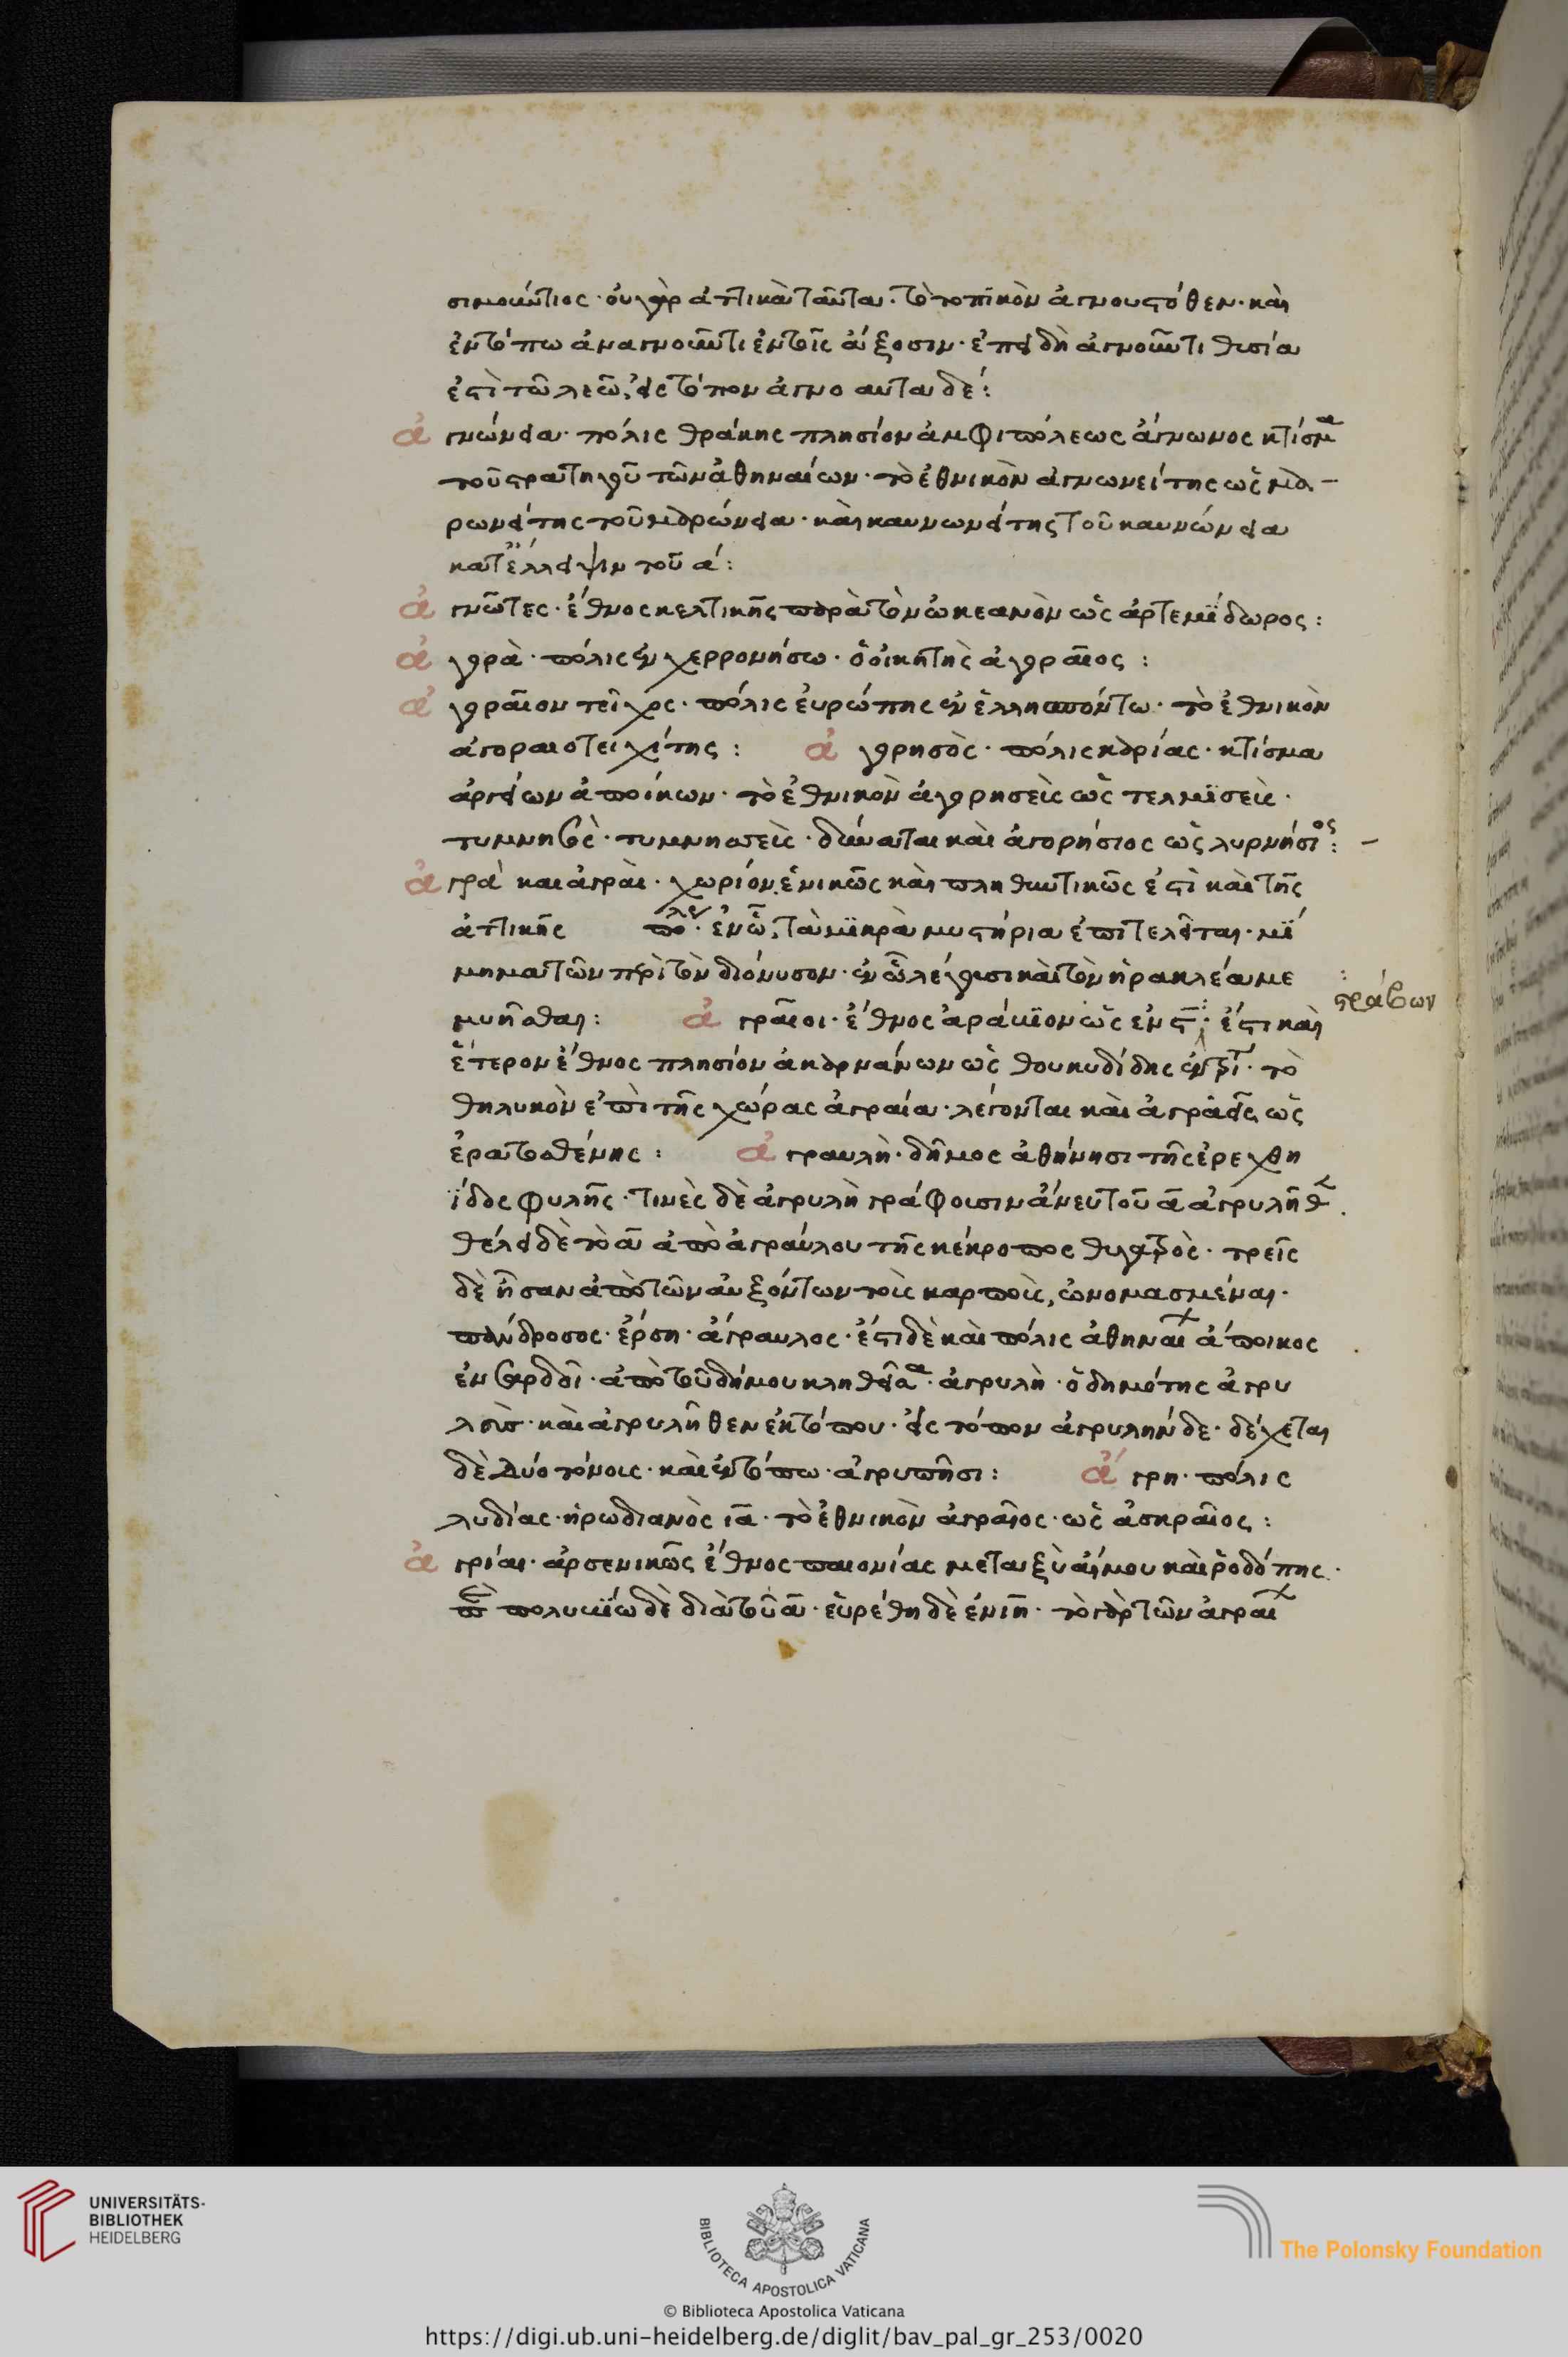 σιμοῦντιος· οὐ γὰρ ἀττικὰ ταῦτα. τὸ τοπικὸν ἁγνουστόθεν· καὶ
ἐν τόπω ἀναγνοῦντι ἐν τοῖς ἄξοσιν· ἐπειδὴ ἁγνοῦντι θυσία
ἐστὶ τῶ λεῶ, εἰς τόπον ἁγνο αντα δέ:
ἀ γνώνεια· πόλις θράκης πλησίον ἀμφιπόλεως ἅγνωνος κτίσμα
τοῦ στρατηγοῦ τῶν ἀθηναίων· τὸ ἐθνικὸν ἁγνωνείτης ὡς
ρωνείτης τοῦ ρώνεια· καὶ καυνωνείτης τοῦ καυνώνεια
κατ' ἔλλειψιν τοῦ α:
ἀ γνῶτες· ἔθνος κελτικῆς παρὰ τὸν ὠκεανὸν ὡς ἀρτεμίδωρος:
ἀ γορὰ· πόλις ἐν χερρονήσω· ὁ οἰκητὴς ἀγοραῖος:
ἀ γοραῖον τεῖχος· πόλις εὐρώπης ἐν ἑλλησπόντω· τὸ ἐθνικὸν
ἀγοραιοτειχίτης: ἀ γορησὸς· πόλις καρίας· κτίσμα
ἀργείων ἀποίκων· τὸ ἐθνικὸν ἀγορησεὺς ὡς τελμισεὺς·
τυμνησσεὺς· δύναται καὶ ἀγορήσιος ὡς λυρνήσιος: –
ἀ γρά καὶ ἀγραὶ· χωρίον, ἑνικῶς καὶ πληθυντικῶς ἐστὶ καὶ τῆς
ἀττικῆς πό· ἐν ὧ, τὰ μικρὰ μυστήρια ἐπιτελεῖται· μί
μημα τῶν περὶ τὸν διόνυσον· ἐν ὧ λέγουσι καὶ τὸν ἡρακλέα με
μυῆσθαι: ἀ γραῖοι· ἔθνος ἀράβιον ὡς ἐν ς· ἔστι καὶ
στράβων
ἕτερον ἔθνος πλησίον ἀκαρνάνων ὡς θουκυδίδης ἐν τρί· τὸ
θηλυκὸν ἐπὶ τῆς χώρας ἀγραία· λέγονται καὶ ἀγράεις, ὡς
ἐρατοσθένης: ἀ γραυλὴ· δῆμος ἀθήνησι τῆς ἐρεχθη
ΐδος φυλῆς· τινὲς δὲ ἀγρυλὴ γράφουσιν ἄνευ τοῦ α ἀγρυλῆθεν
θέλει δὲ τὸ α ἀπὸ ἀγραύλου τῆς κέκροπος θυγατρὸς· τρεῖς
δὲ ἦσαν ἀπὸ τῶν αὐξόντων τοὺς καρποὺς, ὠνομασμέναι·
πάνδροσος· ἔρση· ἄγραυλος· ἔστι δὲ καὶ πόλις ἀθηναίων ἄποικος
ἐν σαρδοῖ· ἀπὸ τοῦ δήμου κληθεῖσα· ἀγρυλὴ· ὁ δημότης ἀγρυ
λεὺς· καὶ ἀγρυλῆθεν ἐκ τόπου· εἰς τόπον ἀγρυλήνδε· δέχεται
δὲ δύο τόνους· καὶ ἐν τόπω· ἀγρυπῆσι: ἄ γρη· πόλις
λυδίας· ἡρωδιανὸς ια· τὸ ἐθνικὸν ἀγραῖος· ὡς ἀσκραῖος:
ἀ γρίαι· ἀρσενικῶς ἔθνος παιονίας μεταξὺ αἵμου καὶ ῥοδόπης·
πολυβίω δὲ διὰ τοῦ α· εὑρέθη δὲ ἐν ιη· τὸ γὰρ τῶν ἀγραί
UNIVERSITÄTS-
BIBLIOTHEK
HEIDELBERG
BIBLIOTECA APOSTOLICA VATICANA
The Polonsky Foundation
© Biblioteca Apostolica Vaticana
https://digi.ub.uni-heidelberg.de/diglit/bav_pal_gr_253/0020